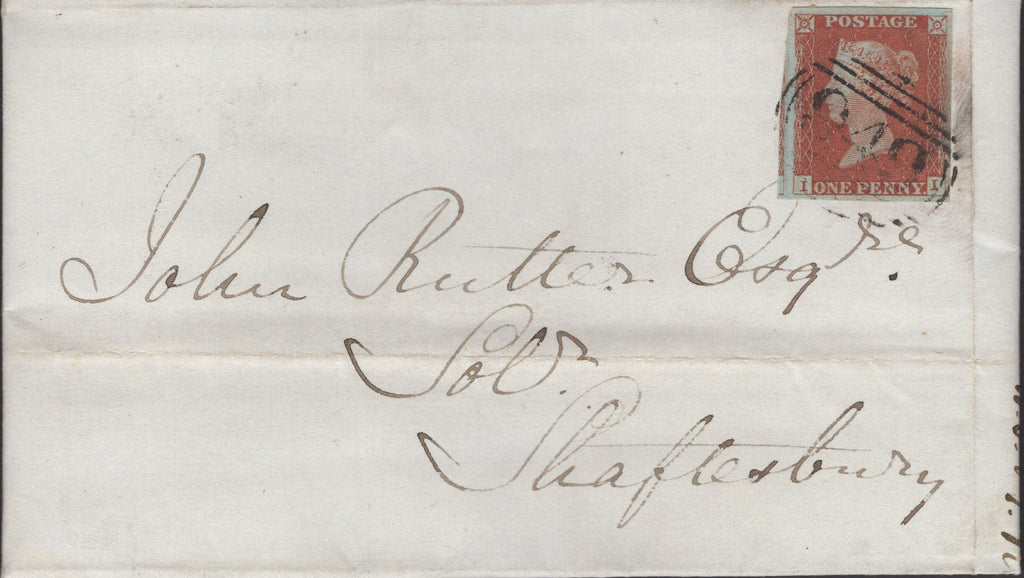 POSTAGE
I ONE PENNY. I
John Rutter Esqre.
Solr.
Shaftesbury